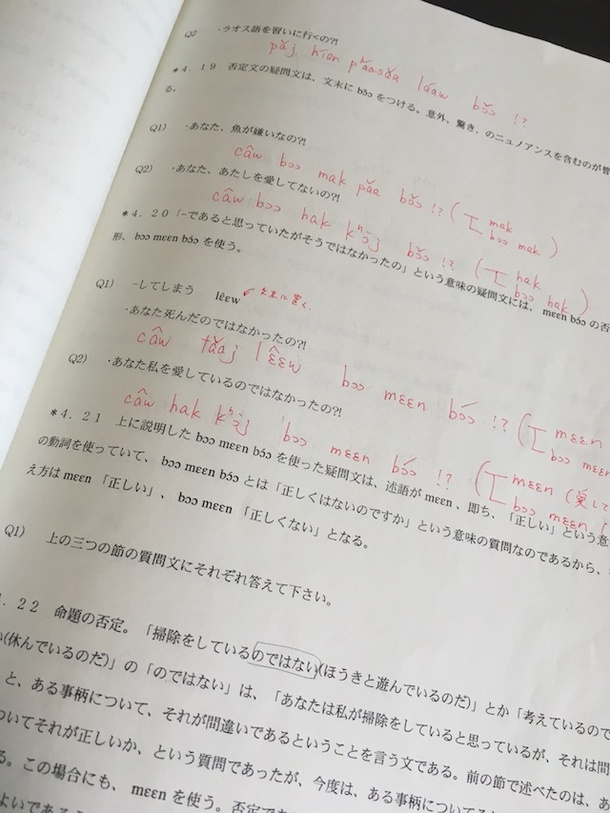 Q2 ・ラオス語を習いに行くの?!
pǎj hían pʰáasǎa láaw bɔ̌ɔ !?
*4．19 否定文の疑問文は、文末に bɔ́ɔ をつける。意外、驚き、のニュノアンスを含むのが
る。
Q1) ・あなた，魚が嫌いなの?!
câw bɔɔ mak pǎa bɔ̌ɔ !? ( mak
bɔɔ mak )
Q2) ・あなた，あたしを愛してないの?!
câw bɔɔ hak kʰɔ̌j bɔ̌ɔ !? ( hak
bɔɔ hak )
*4．20「-であると思っていたがそうではなかったの」という意味の疑問文には、mɛɛn bɔ́ɔ の否
形、bɔɔ mɛɛn bɔ́ɔ を使う。
Q1) -してしまう lɛ̂ɛw 文末に置く．
・あなた死んだのではなかったの?!
câw tǎaj lɛ̂ɛw bɔɔ mɛɛn bɔ́ɔ !? ( mɛɛn
bɔɔ mɛɛn
Q2) ・あなた私を愛しているのではなかったの?!
câw hak kʰɔ̌j bɔɔ mɛɛn bɔ́ɔ !? ( mɛɛn (愛して
bɔɔ mɛɛn (
*4．21 上に説明した bɔɔ mɛɛn bɔ́ɔ を使った疑問文は、述語が mɛɛn 、即ち、「正しい」という意
の動詞を使っていて、bɔɔ mɛɛn bɔ́ɔ とは「正しくはないのですか」という意味の質問なのであるから、
え方は mɛɛn 「正しい」、bɔɔ mɛɛn 「正しくない」となる。
Q1) 上の三つの節の質問文にそれぞれ答えて下さい。
4．22 命題の否定。「掃除をしているのではない(ほうきと遊んでいるのだ)」とか「考えているので
(休んでいるのだ)」の「のではない」は、「あなたは私が掃除をしていると思っているが、それは間
と、ある事柄について、それが間違いであるということを言う文である。前の節で述べたのは、あ
ついてそれが正しいか、という質問であったが、今度は、ある事柄について
る。この場合にも、mɛɛn を使う。否定であ
よいである